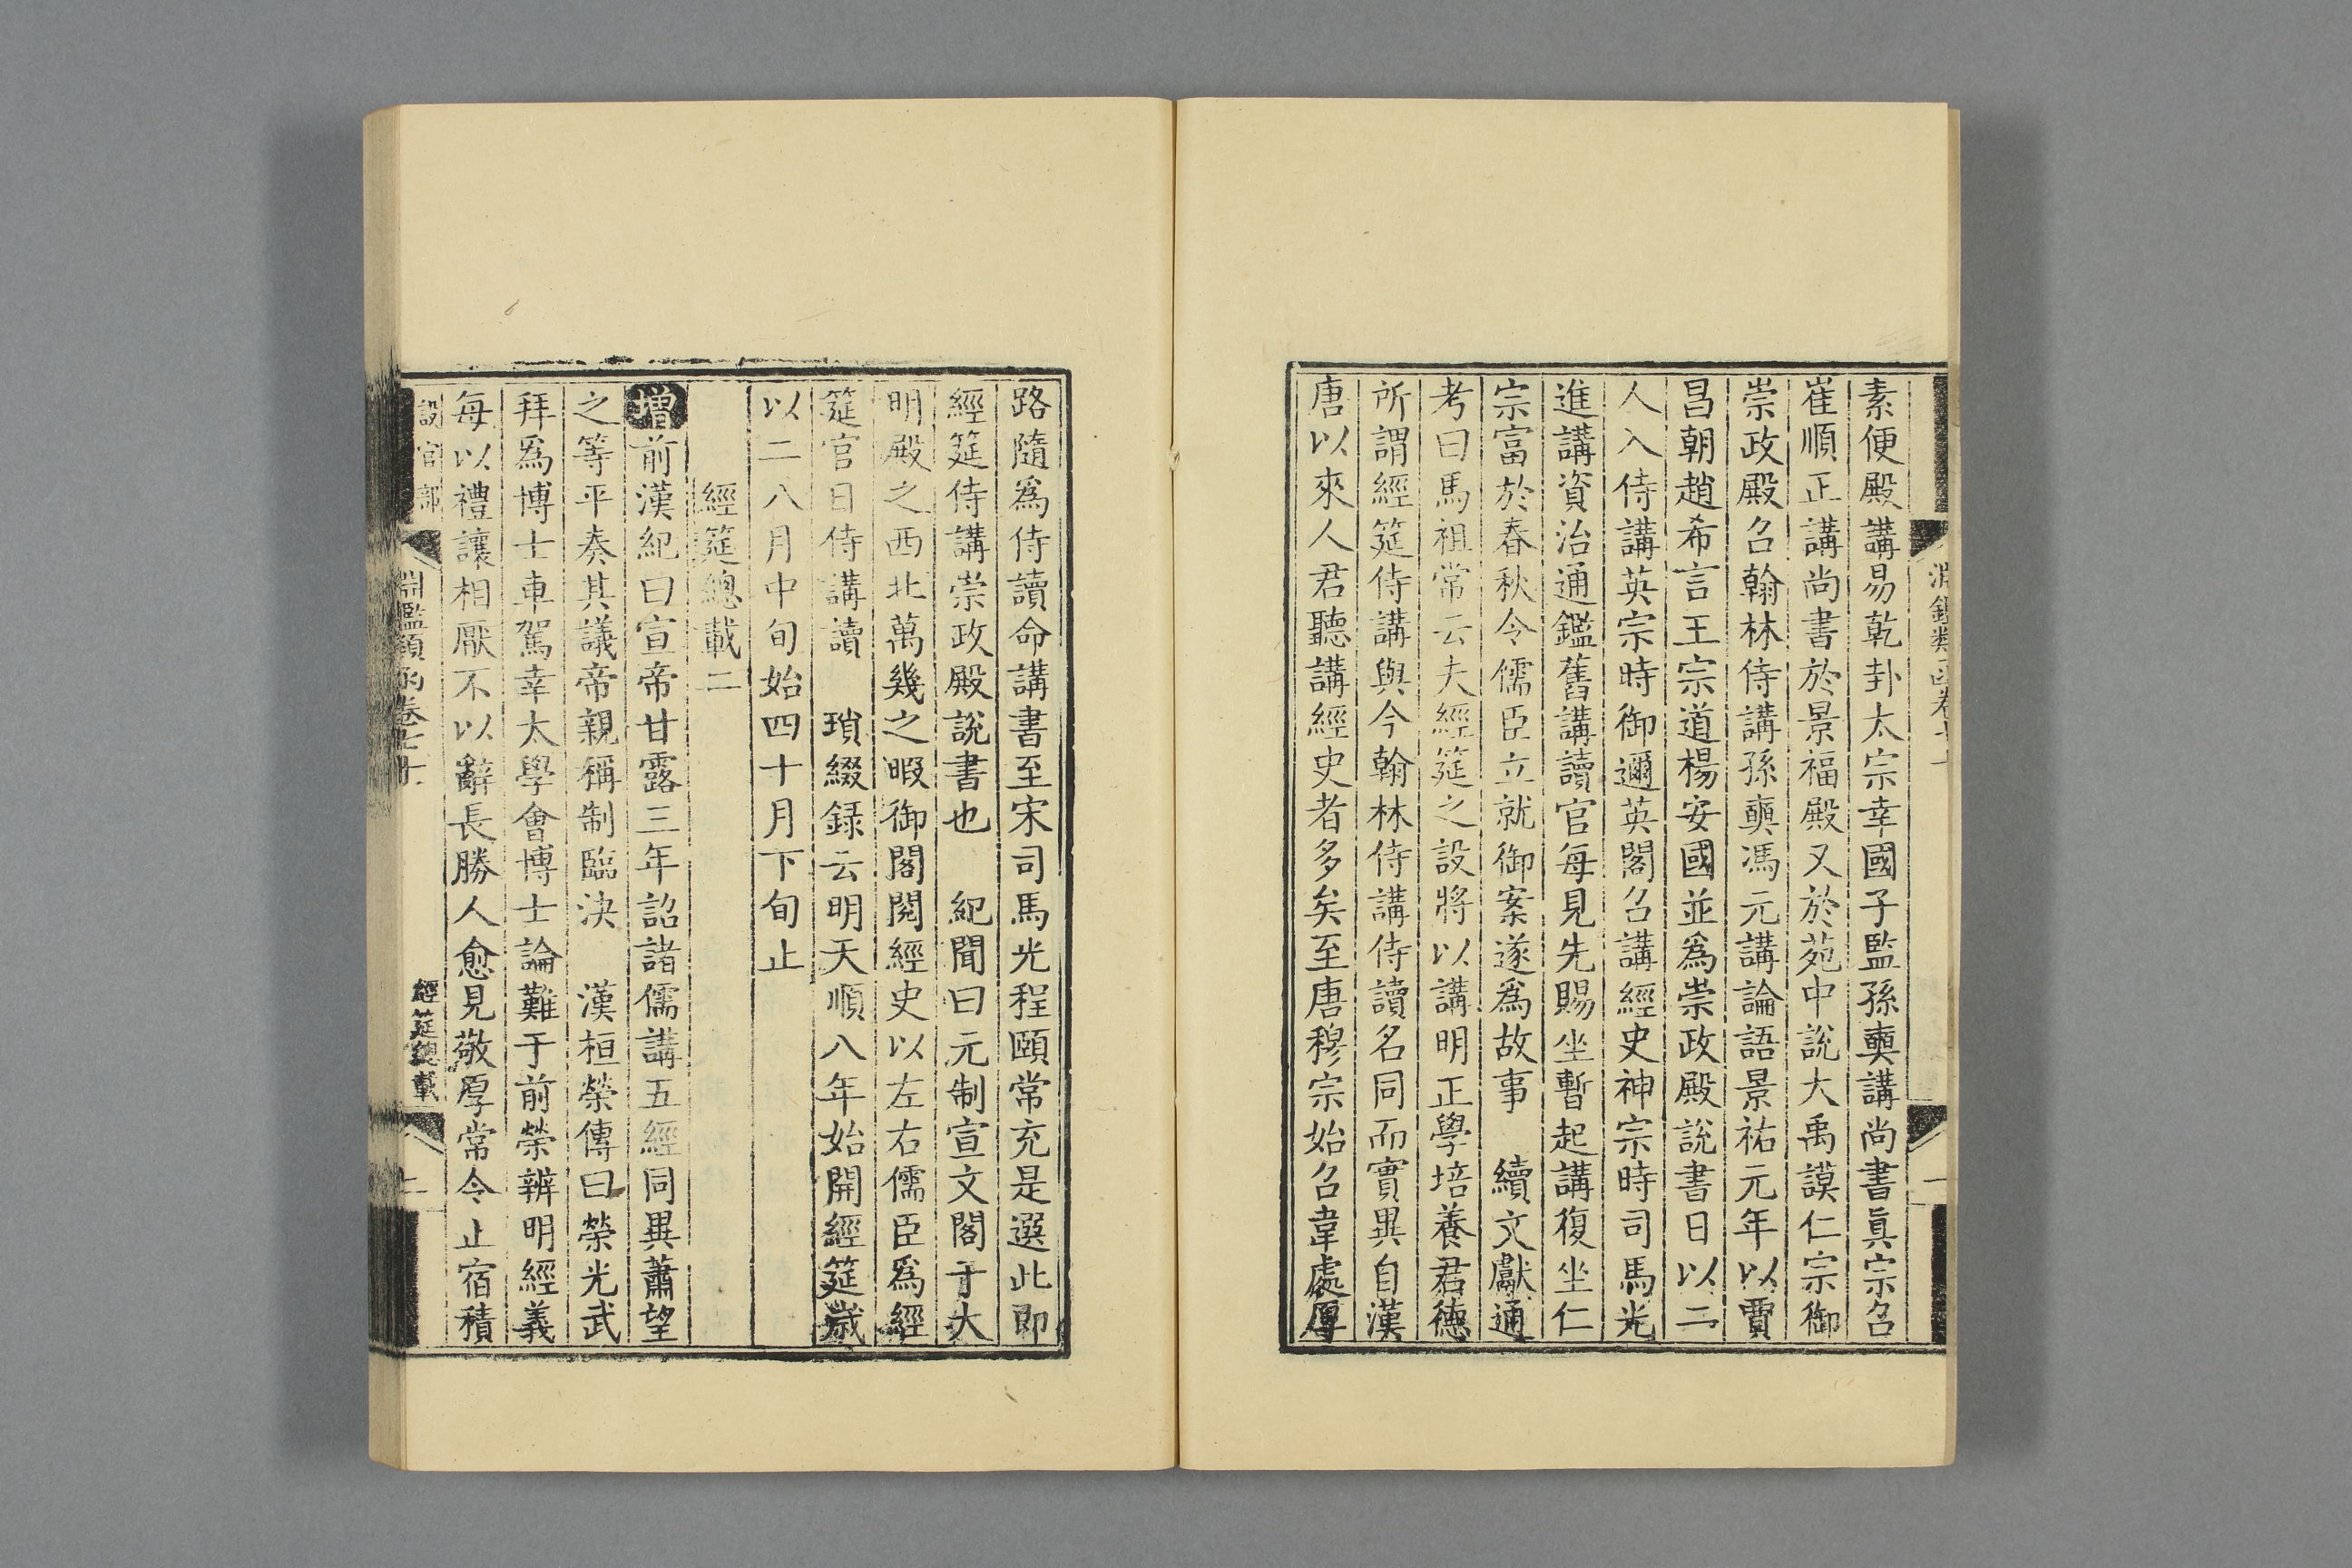 素便殿講易乾卦太宗幸國子監孫奭講尚書眞宗召
崔順正講尚書於景福殿又於苑中說大禹謨仁宗御
崇政殿召翰林侍講孫奭馮元講論語景祐元年以賈
昌朝趙希言王宗道楊安國並爲崇政殿說書日以二
人入侍講英宗時御邇英閣召講經史神宗時司馬光
進講資治通鑑舊講讀官每見先賜坐暫起講復坐仁
宗富於春秋令儒臣立就御案遂爲故事　續文獻通
考曰馬祖常云夫經筵之設將以講明正學培養君德
所謂經筵侍講與今翰林侍講侍讀名同而實異自漢
唐以來人君聽講經史者多矣至唐穆宗始召韋處厚
路隨爲侍讀命講書至宋司馬光程頤常充是選此即
經筵侍講崇政殿說書也　紀聞曰元制宣文閣于大
明殿之西北萬幾之暇御閣閱經史以左右儒臣爲經
筵官日侍講讀　瑣綴録云明天順八年始開經筵歲
以二八月中旬始四十月下旬止
經筵總載二
增前漢紀曰宣帝甘露三年詔諸儒講五經同異蕭望
之等平奏其議帝親稱制臨決　漢桓榮傳曰榮光武
拜爲博士車駕幸太學會博士論難于前榮辨明經義
每以禮讓相厭不以辭長勝人愈見敬厚常令止宿積
設官部
淵鑑類函卷七十
經筵總載